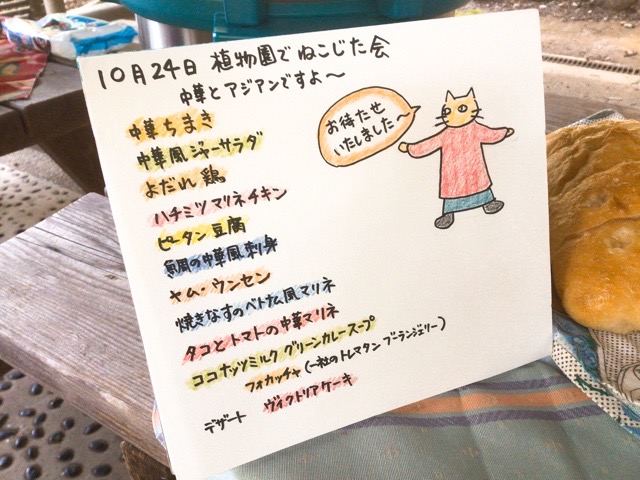 10月24日 植物園でねこじた会
中華とアジアンですよ〜
お待たせ
いたしました〜
中華ちまき
中華風ジャーサラダ
よだれ鶏
ハチミツマリネチキン
ピータン豆腐
魚周の中華風刺身
ヤム・ウンセン
焼きなすのベトナム風マリネ
タコとトマトの中華マリネ
ココナッツミルクグリーンカレースープ
フォカッチャ(一社のトレマタン ブーランジェリー)
デザート ヴィクトリアケーキ